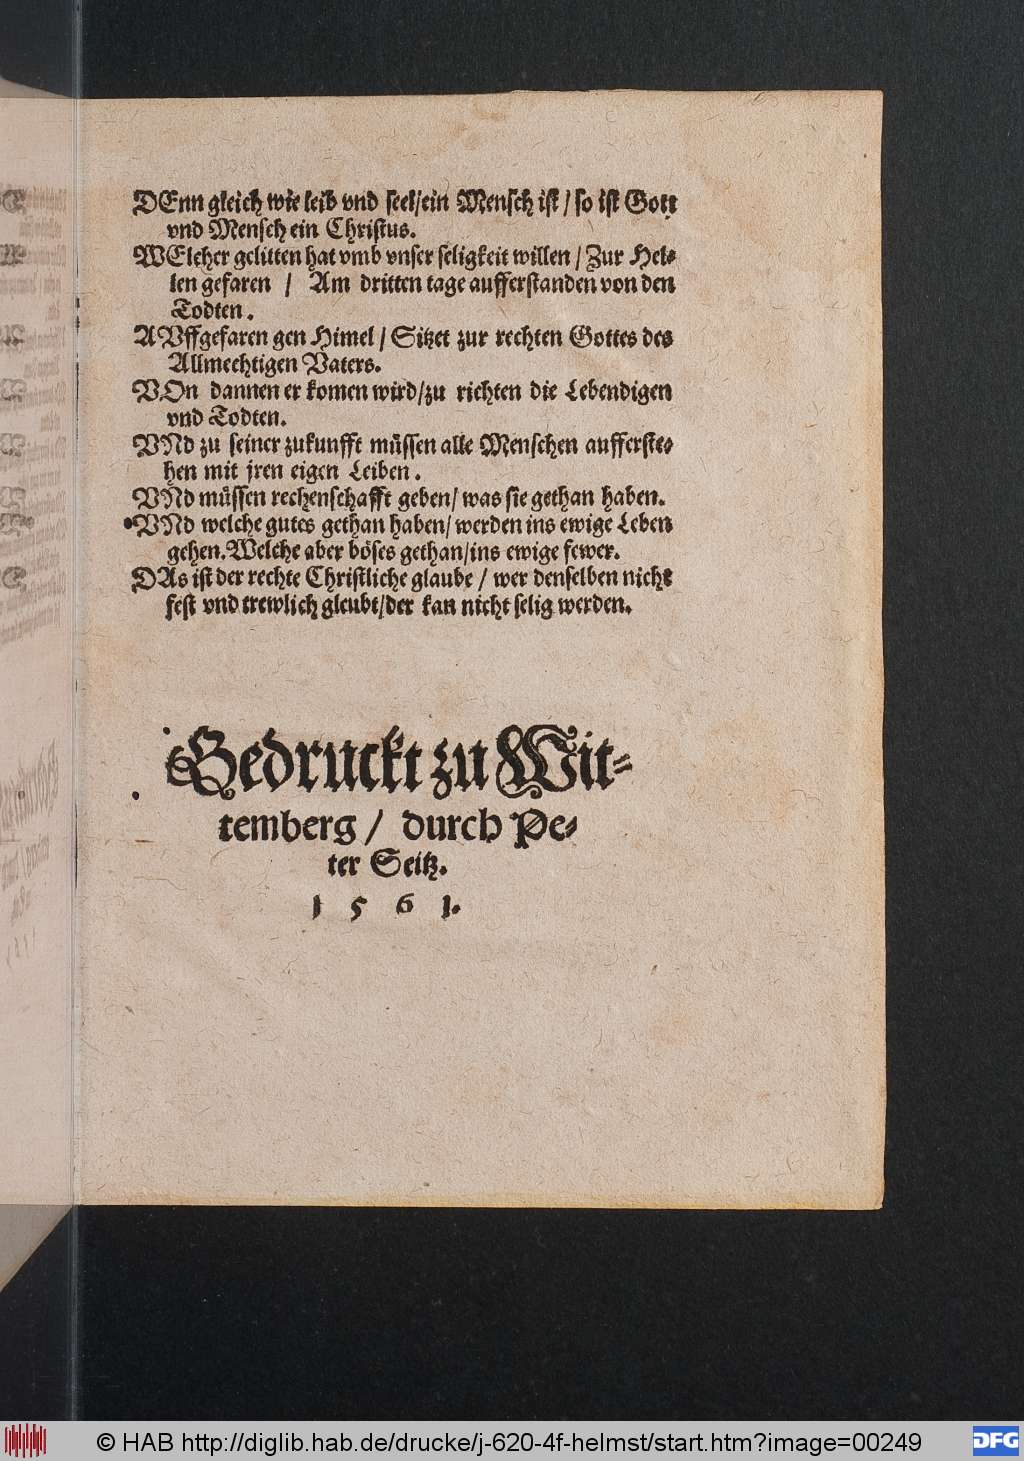 DEnn gleich wie leib vnd seel/ein Mensch ist/so ist Gott
vnd Mensch ein Christus.
WElcher gelitten hat vmb vnser seligkeit willen/Zur Hel-
len gefaren / Am dritten tage aufferstanden von den
Todten.
AVffgefaren gen Himel/Sitzet zur rechten Gottes des
Allmechtigen Vaters.
VOn dannen er komen wird/zu richten die Lebendigen
vnd Todten.
VNd zu seiner zukunfft müssen alle Menschen aufferste-
hen mit jren eigen Leiben.
VNd müssen rechenschafft geben/was sie gethan haben.
VNd welche gutes gethan haben/werden ins ewige Leben
gehen. Welche aber böses gethan/ins ewige fewer.
DAs ist der rechte Christliche glaube/wer denselben nicht
fest vnd trewlich gleubt/der kan nicht selig werden.
Gedruckt zu Wit-
temberg/ durch Pe-
ter Seitz.
1 5 6 1.
© HAB http://diglib.hab.de/drucke/j-620-4f-helmst/start.htm?image=00249
DFG